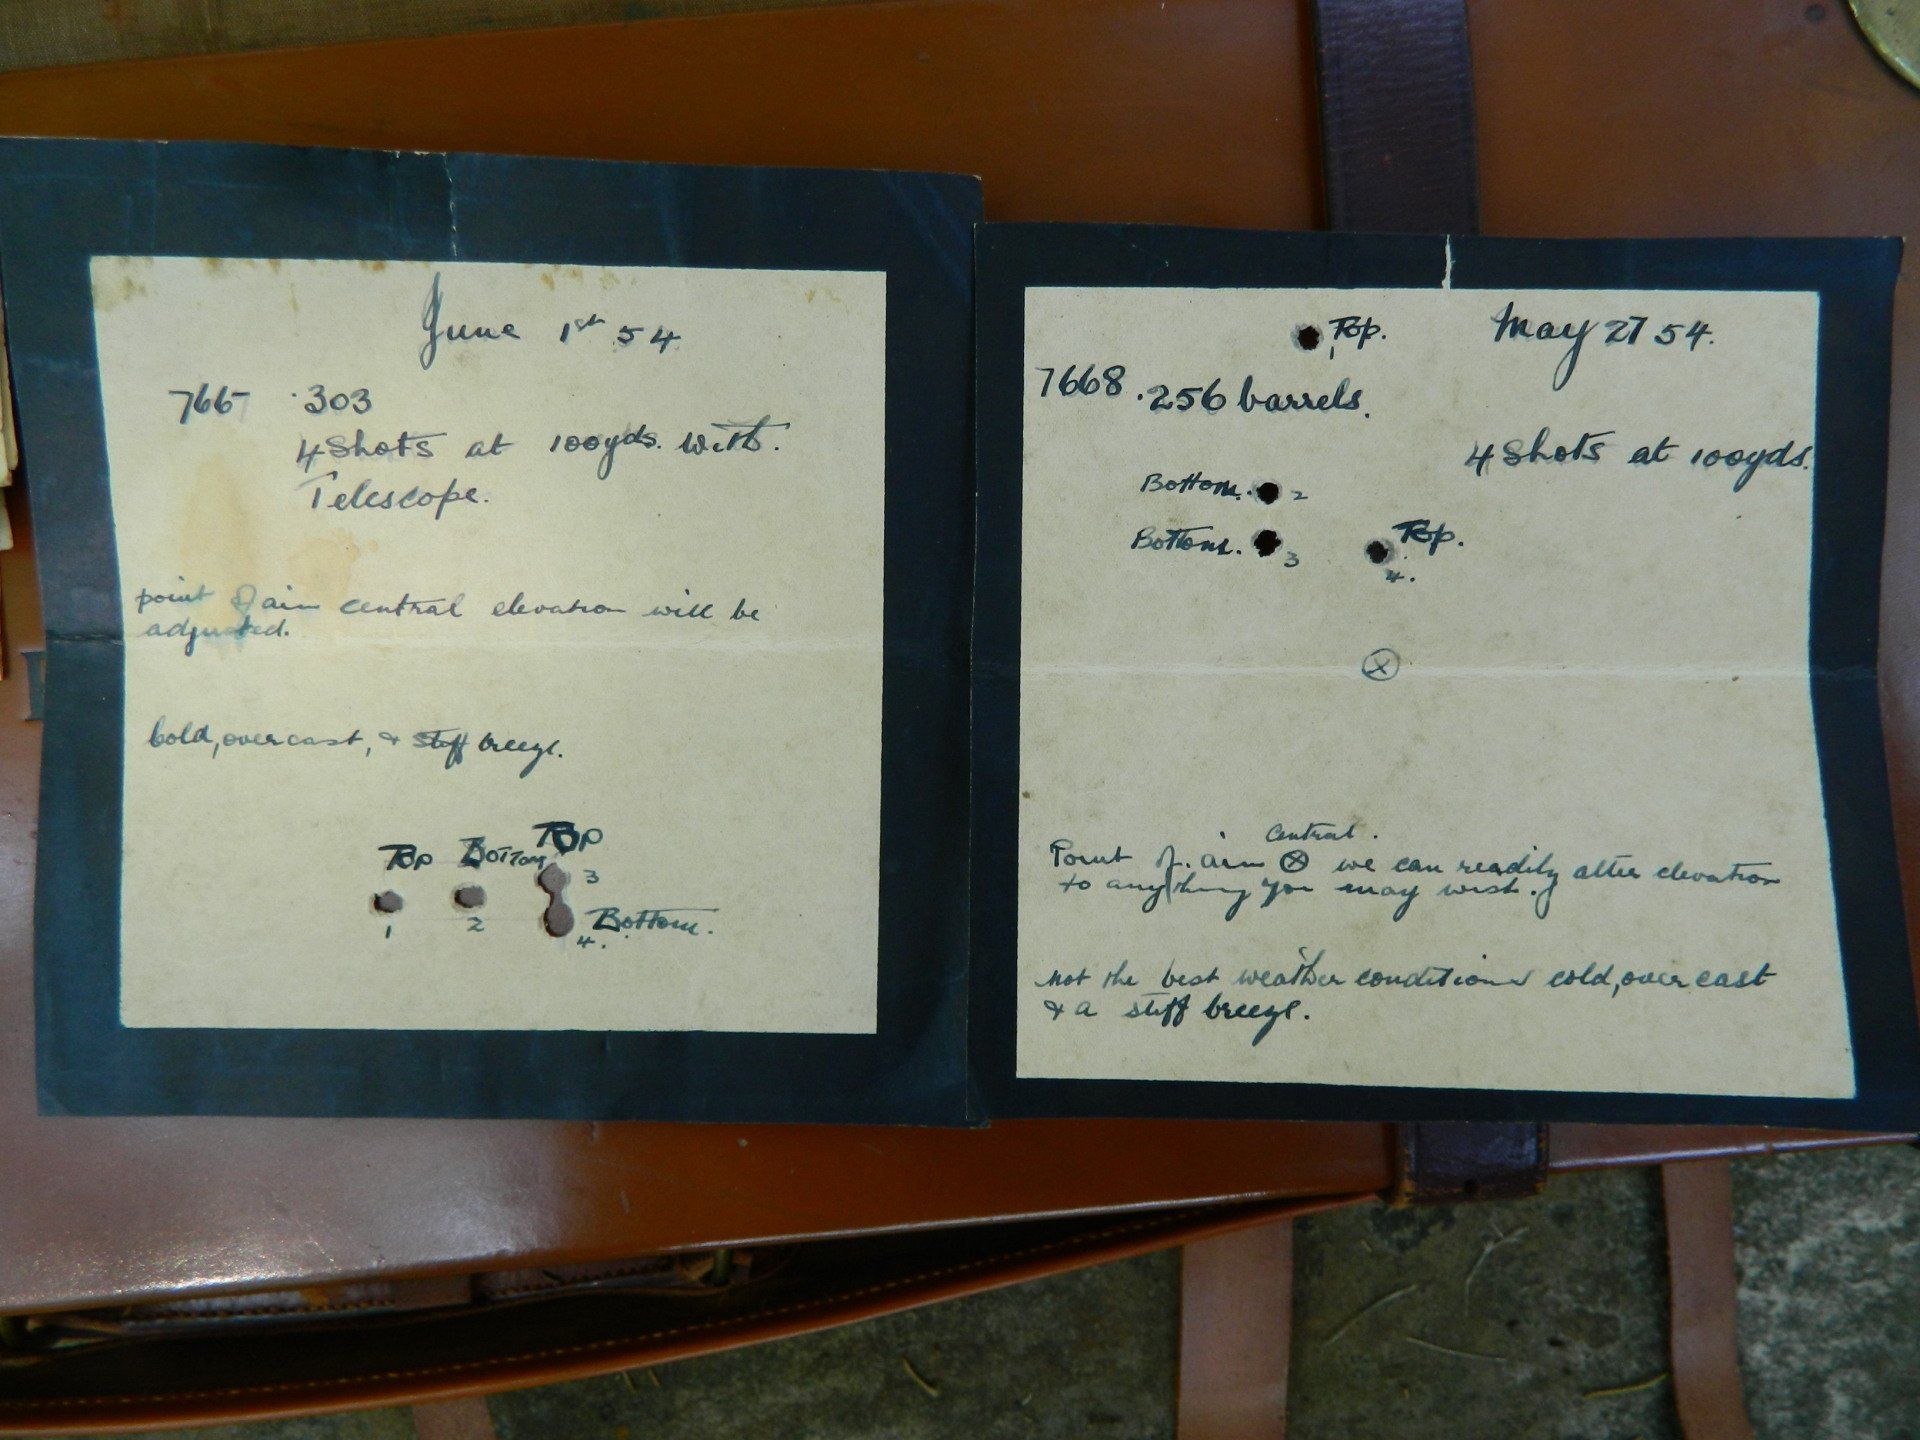 June 1st 54
766 .303
4 Shots at 100yds. with.
Telescope.
point of aim central elevation will be
adjusted.
Cold, overcast, & stiff breeze.
Top Bottom Top
3
1 2
Bottom.
4.
Top. May 27 54.
1
7668 .256 barrels.
4 Shots at 100yds.
Bottom. 2
Bottom. 3 Top.
4.
X
Central.
Point of. aim X we can readily alter elevation
to anything you may wish.
not the best weather conditions cold, overcast
& a stiff breeze.